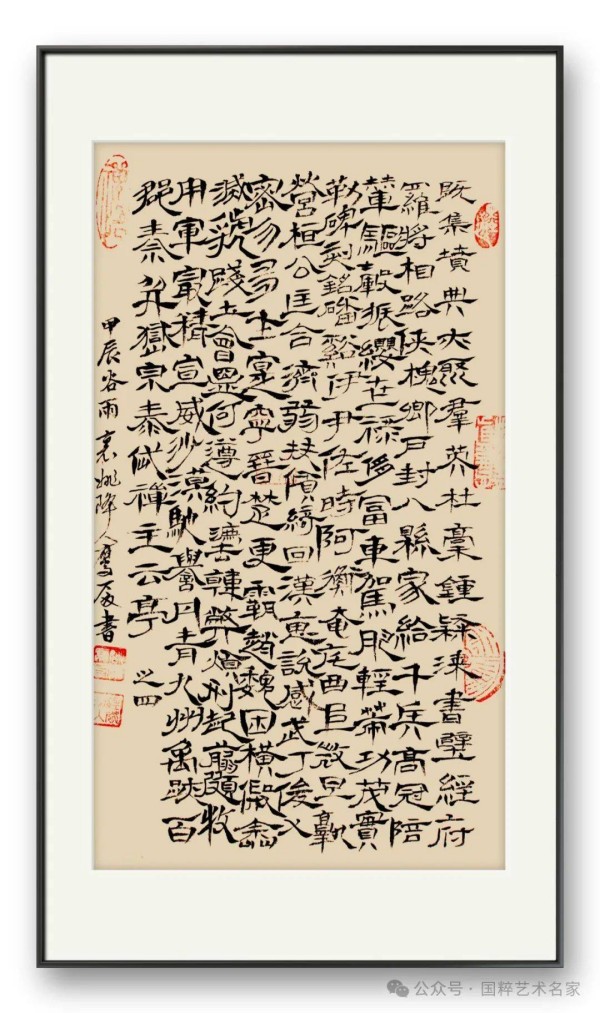 既集墳典亦聚群英杜稾鍾隸漆書壁經府
羅將相路俠槐卿戶封八縣家給千兵高冠陪
輦驅轂振纓世祿侈富車駕肥輕策功茂實
勒碑刻銘磻谿伊尹佐時阿衡奄宅曲阜微旦孰
營桓公匡合濟弱扶傾綺回漢惠說感武丁俊乂
密勿多士寔寧晉楚更霸趙魏困橫假途
滅虢踐土會盟何遵約法韓弊煩刑起翦頗牧
用軍最精宣威沙漠馳譽丹青九州禹跡百
郡秦并嶽宗泰岱禪主云亭 之四
甲辰谷雨 書
公众号·国粹艺术名家